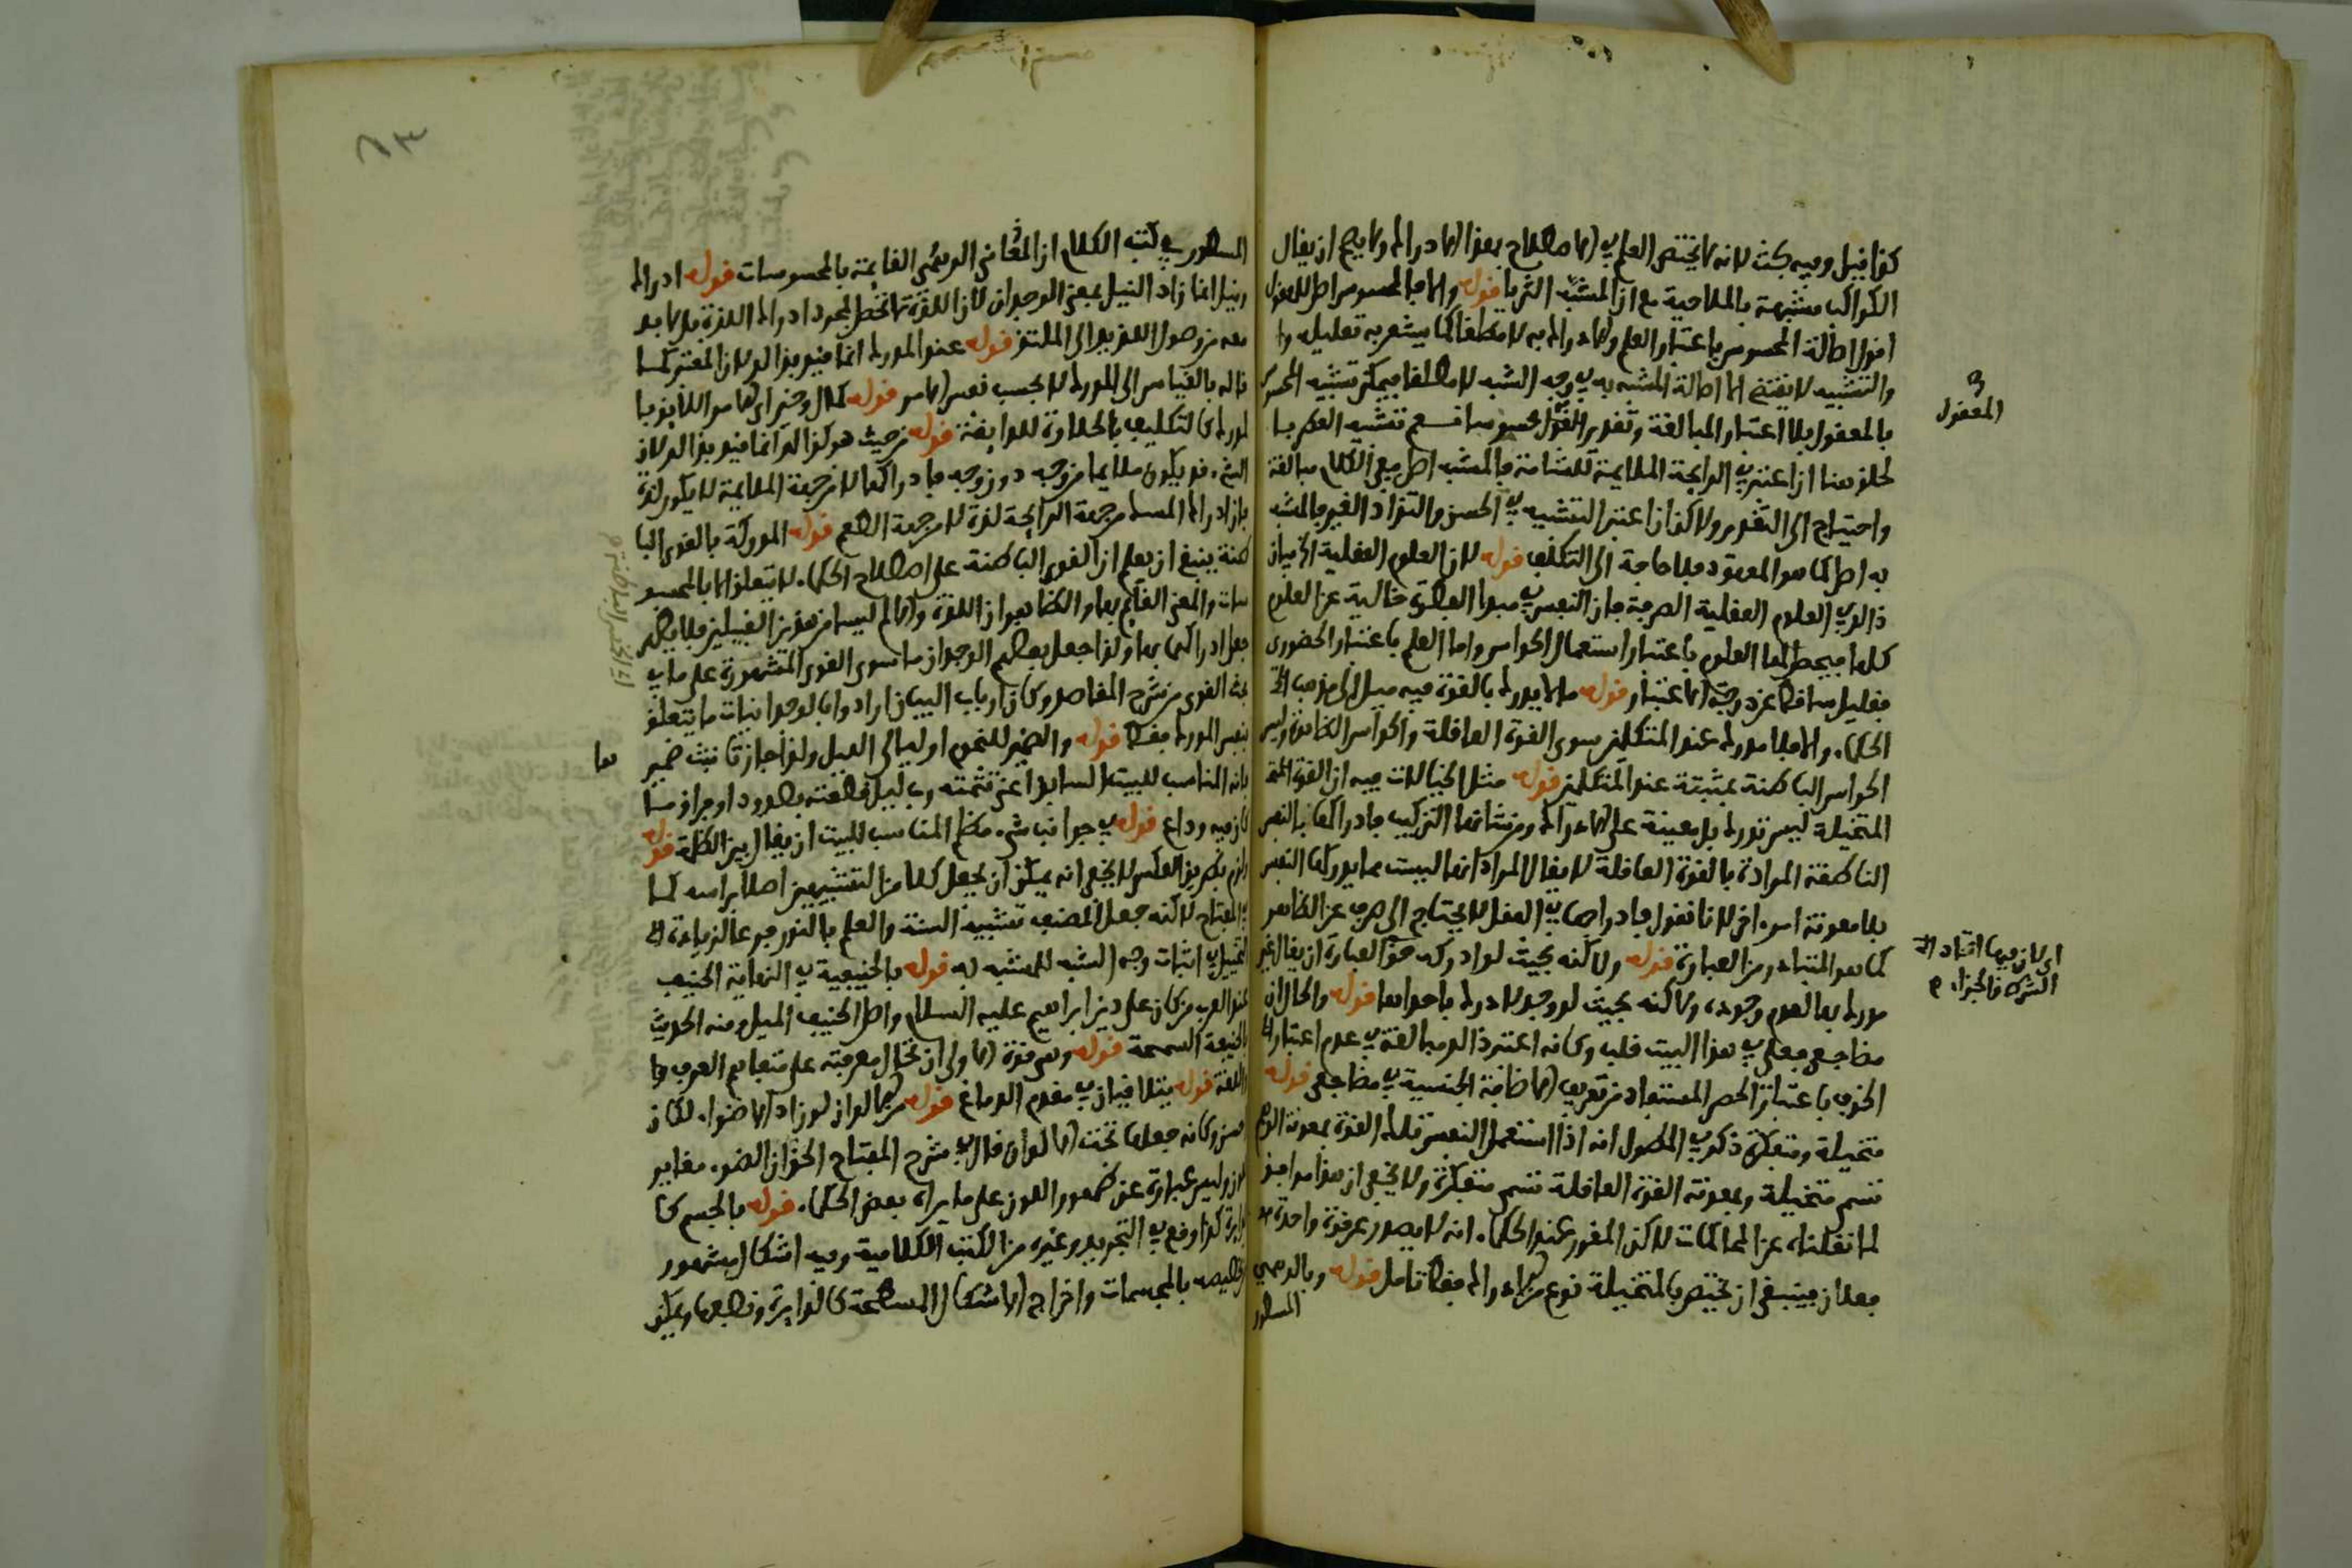 كذا قيل وفيه بحث لانه لا يختص العلم في الاصطلاح بهذا الادراك ولا يصح ان يقال
الكواكب مشبهة بالملاحية مع ان المشبه الثريا قوله والا فالمحسوس اصل للمعقول
اقول اصالة المحسوس باعتبار العلم والادراك به لا مطلقا كما يشعر به تعليله
والتشبيه لا يقتضي الا اصالة المشبه به في وجه الشبه لا مطلقا فيمكن تشبيه المحسوس
بالمعقول بلا اعتبار المبالغة وتقدير المعقول محسوسا
المعقول
لخلق هنا ان اعتبر في الرائحة الملايمة للشامة فالمشبه اصل ففي الكلام مبالغة
واحتياج الى التقدير ولاكن ان اعتبر التشبيه في الحسن والتذاذ الغير فالمشبه
به اصل كما هو المعهود فلا حاجة الى التكلف قوله لان العلوم العقلية
ذالك في العلوم العقلية الصرفة فان النفس في مبدا الفطرة خالية عن العلوم
كلها فيحصل لها العلوم باعتبار استعمال الحواس واما العلم باعتبار الحضوري
فقليل ساقط عن درجة الاعتبار قوله ما لا يدرك بالقوة فيه ميل الى مذهب
الحكماء والا فلا مدرك عند المتكلمين سوى القوة العاقلة والحواس الظاهرة وليس
الحواس الباطنة بمثبتة عند المتكلمين قوله مثل الخيالات فيه ان القوة
المتخيلة ليس تدرك بل معينة على الادراك ومن شانها التركيب فادراكها بالنفس
الناطقة المرادة بالقوة العاقلة لا يقال المراد انها ليست مما يدركها النفس
بلا معونة امر اخر لانا نقول فادراجها في العقل لا يحتاج الى صرف عن الظاهر
كما هو المتبادر من العبارة قوله ولاكنه بحيث لو ادرك حق العبارة ان يقال غير
اي كان فيها اتحاد
الشرط والجزاء
مدرك بها لعدم وجوده ولاكنه بحيث لو وجد لادرك باحداها قوله والحال ان
مضاجعي ففي هذا البيت قلب وكانه اعتبر ذالك مبالغة في عدم اعتبار
الخوف باعتبار الحصر المستفاد من تعريف الاضافة الجنسية في مضاجعي قوله
متخيلة ومتفكرة ذكر في المطول انه اذا استعمل النفس تلك القوة بمعونة الوهم
تسمى متخيلة وبمعونة القوة العاقلة تسمى متفكرة ولا يخفى ان هذا موافق
لما نقلناه عن المحاكمات لاكن المقرر عند الحكماء انه لا يصدر عن قوة واحدة
فعلان فينبغي ان تختص المتخيلة نوع من الادراك فقط تامل قوله وبالوهمي
المسطور
المسطور في كتب الكلام ان المعاني الوهمي القايمة بالمحسوسات قوله ادراك
ونيل انما زاد النيل بمعنى الوجدان لان اللذة لا تحصل بمجرد ادراك اللذة بل لا بد
معه من وصول اللذيذ الى الملتذ قوله عند المدرك انما قيد بذالك لان المعتبر
كماله بالقياس الى المدرك لا بحسب نفس الامر قوله كمال وخير اي هو اللايق
لمدرك كالتكليف بالحلاوة للذايقة قوله من حيث هو كذالك انما قيد بذالك لان
الشيء قد يكون ملايما من وجه دون وجه فادراكها لا من جهة الملايمة لا يكون لذة
فان ادراك المسك من جهة الرايحة لذة لا من جهة الطعم قوله المدركة بالقوى البا
طنة ينبغي ان يعلم ان القوى الباطنة على اصطلاح الحكماء لا تتعلق الا بالمحسو
سات والمعنى القايم بها والظاهر ان اللذة والالم ليسا من هذين القبيلين فلا يظهر
جعل ادراكهما بها ولذا جعل بعضهم الوجدان ما سوى القوى المشهورة على ما في
بحث القوى من شرح المقاصد وكان ارباب البيان ارادوا بالوجدانيات ما يتعلق
بنفس المدرك فقط قوله والضمير للنجوم او لليالي الليل ولذا جاز تانيث ضمير
ها
فانه المناسب للبيت السابق اعني تتمته رب ليل قطعته بصدود او فراق ما
كان فيه وداع قوله في جوانب شيء مظلم المناسب للبيت ان يقال بين الظلمة قوله
ولزم بطريق العكس لا يخفى انه يمكن ان يجعل كلا من التشبيهين اصلا براسه كما
في المفتاح لاكنه جعل المصنف تشبيه السنة والعلم بالنور فرعا لزيادة
لتخييل في اثبات وجه الشبه للمشبه به قوله بالحنيفية في النهاية الحنيف
عند العرب من كان على دين ابراهيم عليه السلام واصل الحنيف الميل ومنه الحديث
بالحنيفة السمحة قوله وهي قوة الاولى ان تحال معرفته على متفاهم العرف
واللغة قوله يتلاقيان في مقدم الدماغ قوله من الالوان لو زاد الاضواء لكان
احسن وكانه جعلها تحت الالوان قال في شرح المفتاح الحق ان الضوء مغاير
للون وليس عبارة عن ظهور اللون على ما يراه بعض الحكماء قوله بالجسم كا
لدايرة كذا وقع في التجريد وغيره من الكتب الكلامية وفيه اشكال مشهور
وتخصيصه بالمجسمات واخراج الاشكال المسطحة كالدايرة ونصفها ويمكن